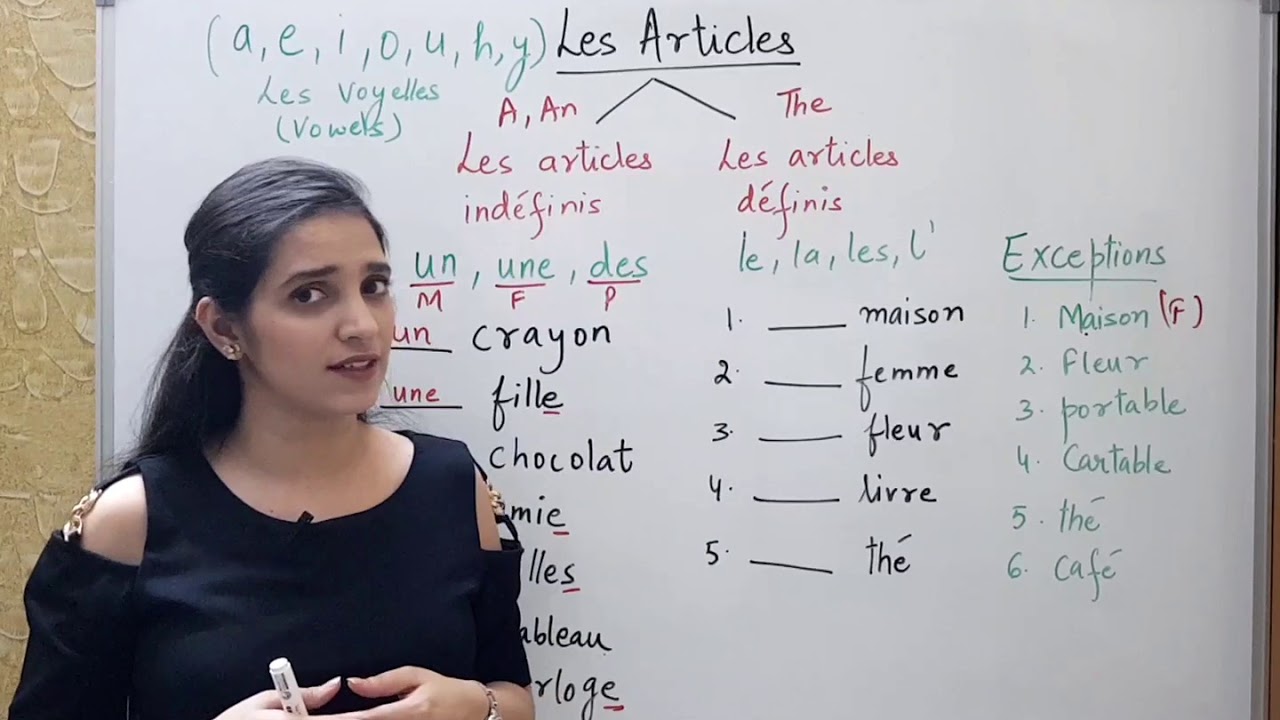 (a, e, i, o, u, h, y) Les Articles
Les Voyelles
(Vowels)
A, An
The
Les articles
indéfinis
Les articles
définis
un, une, des
M F P
le, la, les, l'
un crayon
une fille
chocolat
mie
lles
ableau
rloge
1. ____ maison
2. ____ femme
3. ____ fleur
4. ____ livre
5. ____ thé
Exceptions
1. Maison (F)
2. Fleur
3. portable
4. Cartable
5. thé
6. Café